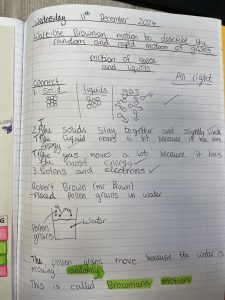 Wednesday 11th December 2024
Walt: Use Brownian motion to describe the
random and rapid motion of gases
motion of gases
and liquids
All right
Connect
1. Solid liquids gas
2. The solids stay together and slightly
The liquid moves a bit because it has some
energy
The gas moves a lot because it has
the most energy
3. Protons and electrons
Robert Brown (mr Brown)
Placed pollen grains in water
water
Pollen
grains
The pollen grains move because the water is
moving randomly.
This is called Brownian motion
G